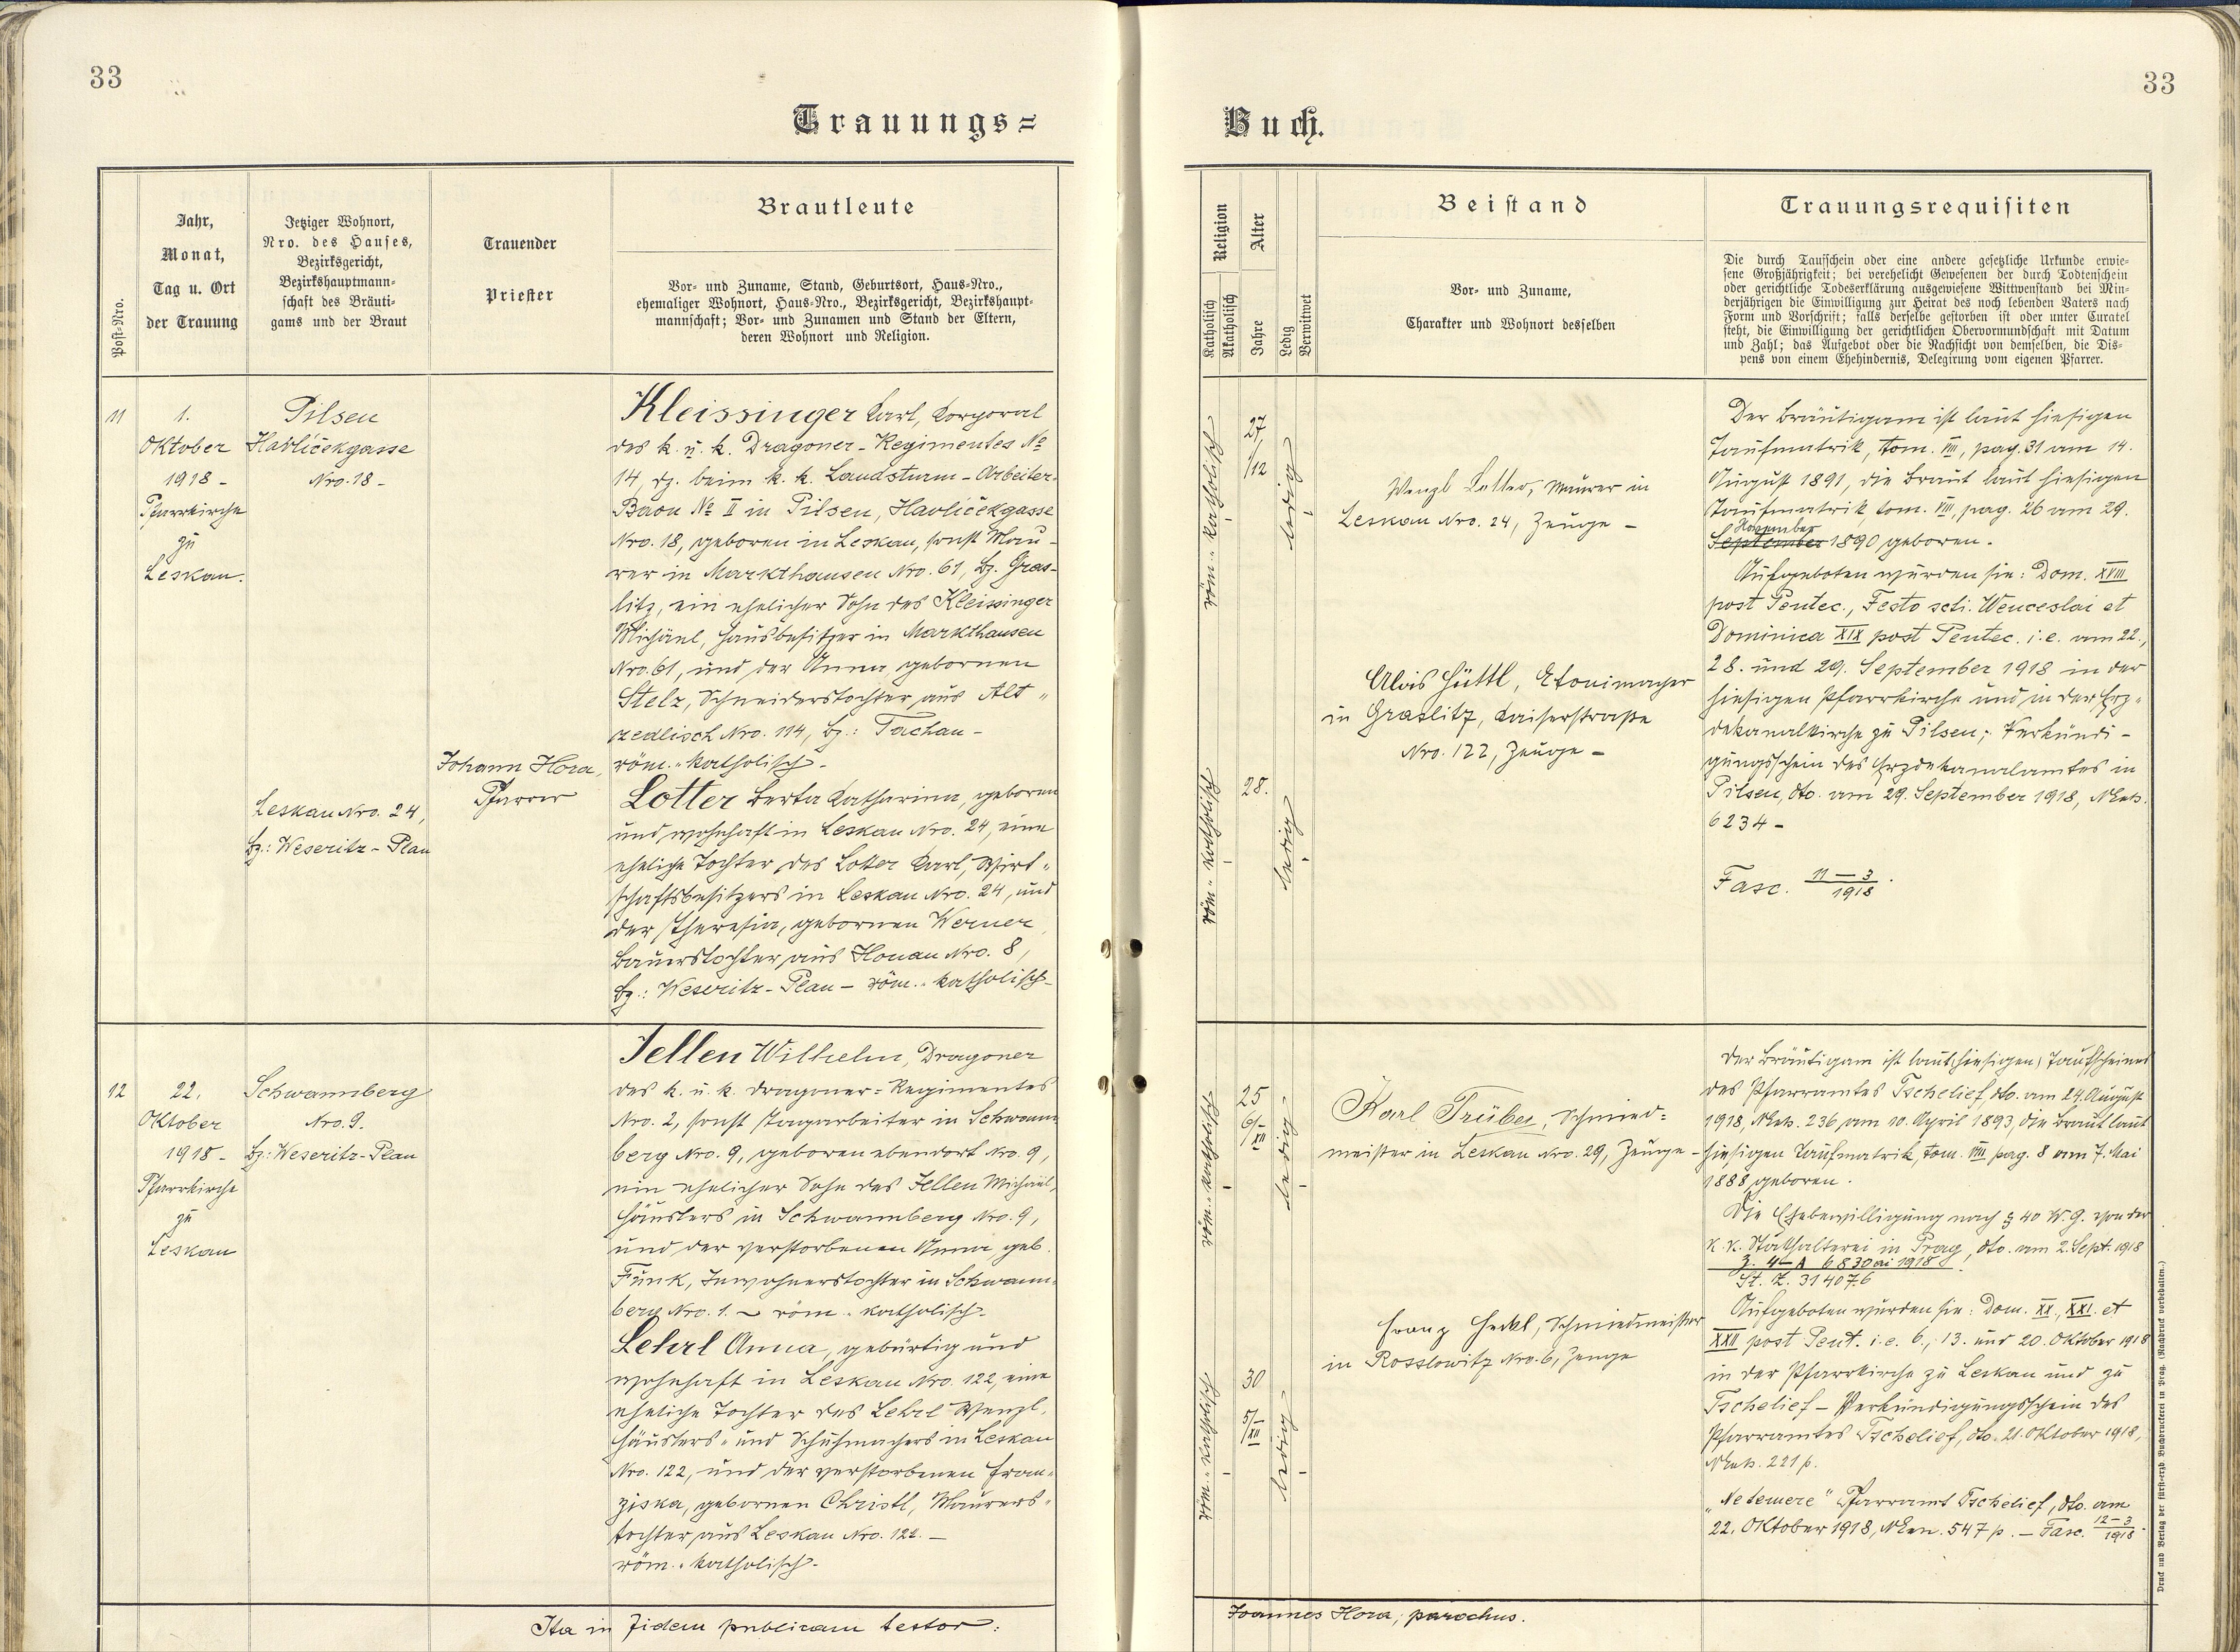 33
33
Trauungs=
Buch.
Post-Nro.
Jahr,
Monat,
Tag u. Ort
der Trauung
Jetziger Wohnort,
Nro. des Hauses,
Bezirksgericht,
Bezirkshauptmann-
schaft des Bräuti-
gams und der Braut
Trauender
Priester
Brautleute
Vor- und Zuname, Stand, Geburtsort, Haus-Nro.,
ehemaliger Wohnort, Haus-Nro., Bezirksgericht, Bezirkshaupt-
mannschaft; Vor- und Zunamen und Stand der Eltern,
deren Wohnort und Religion.
Religion
Katholisch
Akatholisch
Alter
Jahre
Ledig
Verwitwet
Beistand
Vor- und Zuname,
Charakter und Wohnort desselben
Trauungsrequisiten
Die durch Taufschein oder eine andere gesetzliche Urkunde erwie-
sene Großjährigkeit; bei verehelicht Gewesenen der durch Todtenschein
oder gerichtliche Todeserklärung ausgewiesene Wittwenstand bei Min-
derjährigen die Einwilligung zur Heirat des noch lebenden Vaters nach
Form und Vorschrift; falls derselbe gestorben ist oder unter Curatel
steht, die Einwilligung der gerichtlichen Obervormundschaft mit Datum
und Zahl; das Aufgebot oder die Nachsicht von demselben, die Dis-
pens von einem Ehehindernis, Delegirung vom eigenen Pfarrer.
11
1.
Oktober
1918 -
Pfarrkirche
zu
Leskau.
Pilsen
Havlíčekgasse
Nro. 18 -
Leskau Nro. 24,
Bz.: Weseritz - Plan
Johann Hora,
Pfarrer
Kleissinger Karl, Korporal
des k. u. k. Dragoner - Regimentes No
14, dz. beim k. k. Landsturm - Arbeiter-
Baon No II in Pilsen, Havlíčekgasse
Nro. 18, geboren in Leskau, sonst Mau-
rer in Markthausen Nro. 61, Bz. Gras-
litz, ein ehelicher Sohn des Kleissinger
Michäel, Hausbesitzer in Markthausen
Nro. 61, und der Anna gebornen
Stelz, Schneiderstochter aus Alt-
zedlisch Nro. 114, Bz.: Tachau -
röm.-katholisch -
Lotter Berta Katharina, geboren
und wohnhaft in Leskau Nro. 24, eine
eheliche Tochter des Lotter Karl, Wirt-
schaftsbesitzers in Leskau Nro. 24, und
der Theresia, gebornen Werner,
Bauerstochter aus Honau Nro. 8,
Bz.: Weseritz - Plan - röm.-katholisch -
röm.-katholisch
27,
/12
ledig
röm.-katholisch
28.
ledig
Wenzl Lotter, Maurer in
Leskau Nro. 24, Zeuge -
Alois Hüttl,
in Graslitz, Kaiserstraße
Nro. 122, Zeuge -
Der Bräutigam ist laut hiesigen
Taufmatrik, tom. VIII, pag. 31 am 14.
August 1891, die Braut laut hiesigen
Taufmatrik, tom. VIII, pag. 26 am 29.
November
September 1890 geboren.
Aufgeboten wurden sie: Dom. XVIII
post Pentec., Festo scti. Wenceslai et
Dominica XIX post Pentec. i.e. am 22.,
28. und 29. September 1918 in der
hiesigen Pfarrkirche und in der Erz-
dekanalkirche zu Pilsen; Verkündi-
gungsschein des Erzdekanalamtes in
Pilsen, dto. am 29. September 1918, NExh.
6234 -
Fasc. 11 - 3 / 1918.
12
22.
Oktober
1918 -
Pfarrkirche
zu
Leskau
Schwannberg
Nro. 9.
Bz: Weseritz - Plan
Jellen Wilhelm, Dragoner
des k. u. k. Dragoner = Regimentes
Nro. 2, sonst Tagarbeiter in Schwann-
berg Nro. 9, geboren ebendort Nro. 9,
ein ehelicher Sohn des Jellen Michäel,
Häuslers in Schwannberg Nro. 9,
und der verstorbenen Anna, geb.
Funk, Inwohnerstochter in Schwann-
berg Nro. 1. - röm.-katholisch -
Lehrl Anna, gebürtig und
wohnhaft in Leskau Nro. 122, eine
eheliche Tochter des Lehrl Wenzl,
Häuslers- und Schuhmachers in Leskau
Nro. 122, und der verstorbenen Fran-
ziska, gebornen Christl, Maurers-
tochter aus Leskau Nro. 122. -
röm.-katholisch -
röm.-katholisch
25
6/XII
ledig
röm.-katholisch
30
5/XII
ledig
Karl Trüber, Schmied=
meister in Leskau Nro. 29, Zeuge -
Franz Heckl, Schmiedmeister
in Rosslowitz Nro. 6, Zeuge
Der Bräutigam ist laut (hiesigen) Taufscheines
des Pfarramtes Tschelief, dto. am 24. August
1918, NExh. 236 am 10. April 1893, die Braut laut
hiesigen Taufmatrik, tom. VIII pag. 8 am 7. Mai
1888 geboren.
Die Ehebewilligung nach § 40 W.G. von der
k. k. Statthalterei in Prag, dto. am 2. Sept. 1918
Z. 4-A 6830 ai 1918
St. Z. 314076
Aufgeboten wurden sie: Dom. XX., XXI. et
XXII post Pent. i.e. 6., 13. und 20. Oktober 1918
in der Pfarrkirche zu Leskau und zu
Tschelief - Verkündigungsschein des
Pfarramtes Tschelief, dto. 21. Oktober 1918,
NExh. 221 p.
"Ne temere" Pfarramt Tschelief, dto. am
22. Oktober 1918, NEn. 547 p. - Fasc. 12-3 / 1918.
Ita in fidem publicam testor:
Joannes Hora, parochus.
Druck und Verlag der fürst-erzb. Buchdruckerei in Prag. (Nachdruck vorbehalten.)